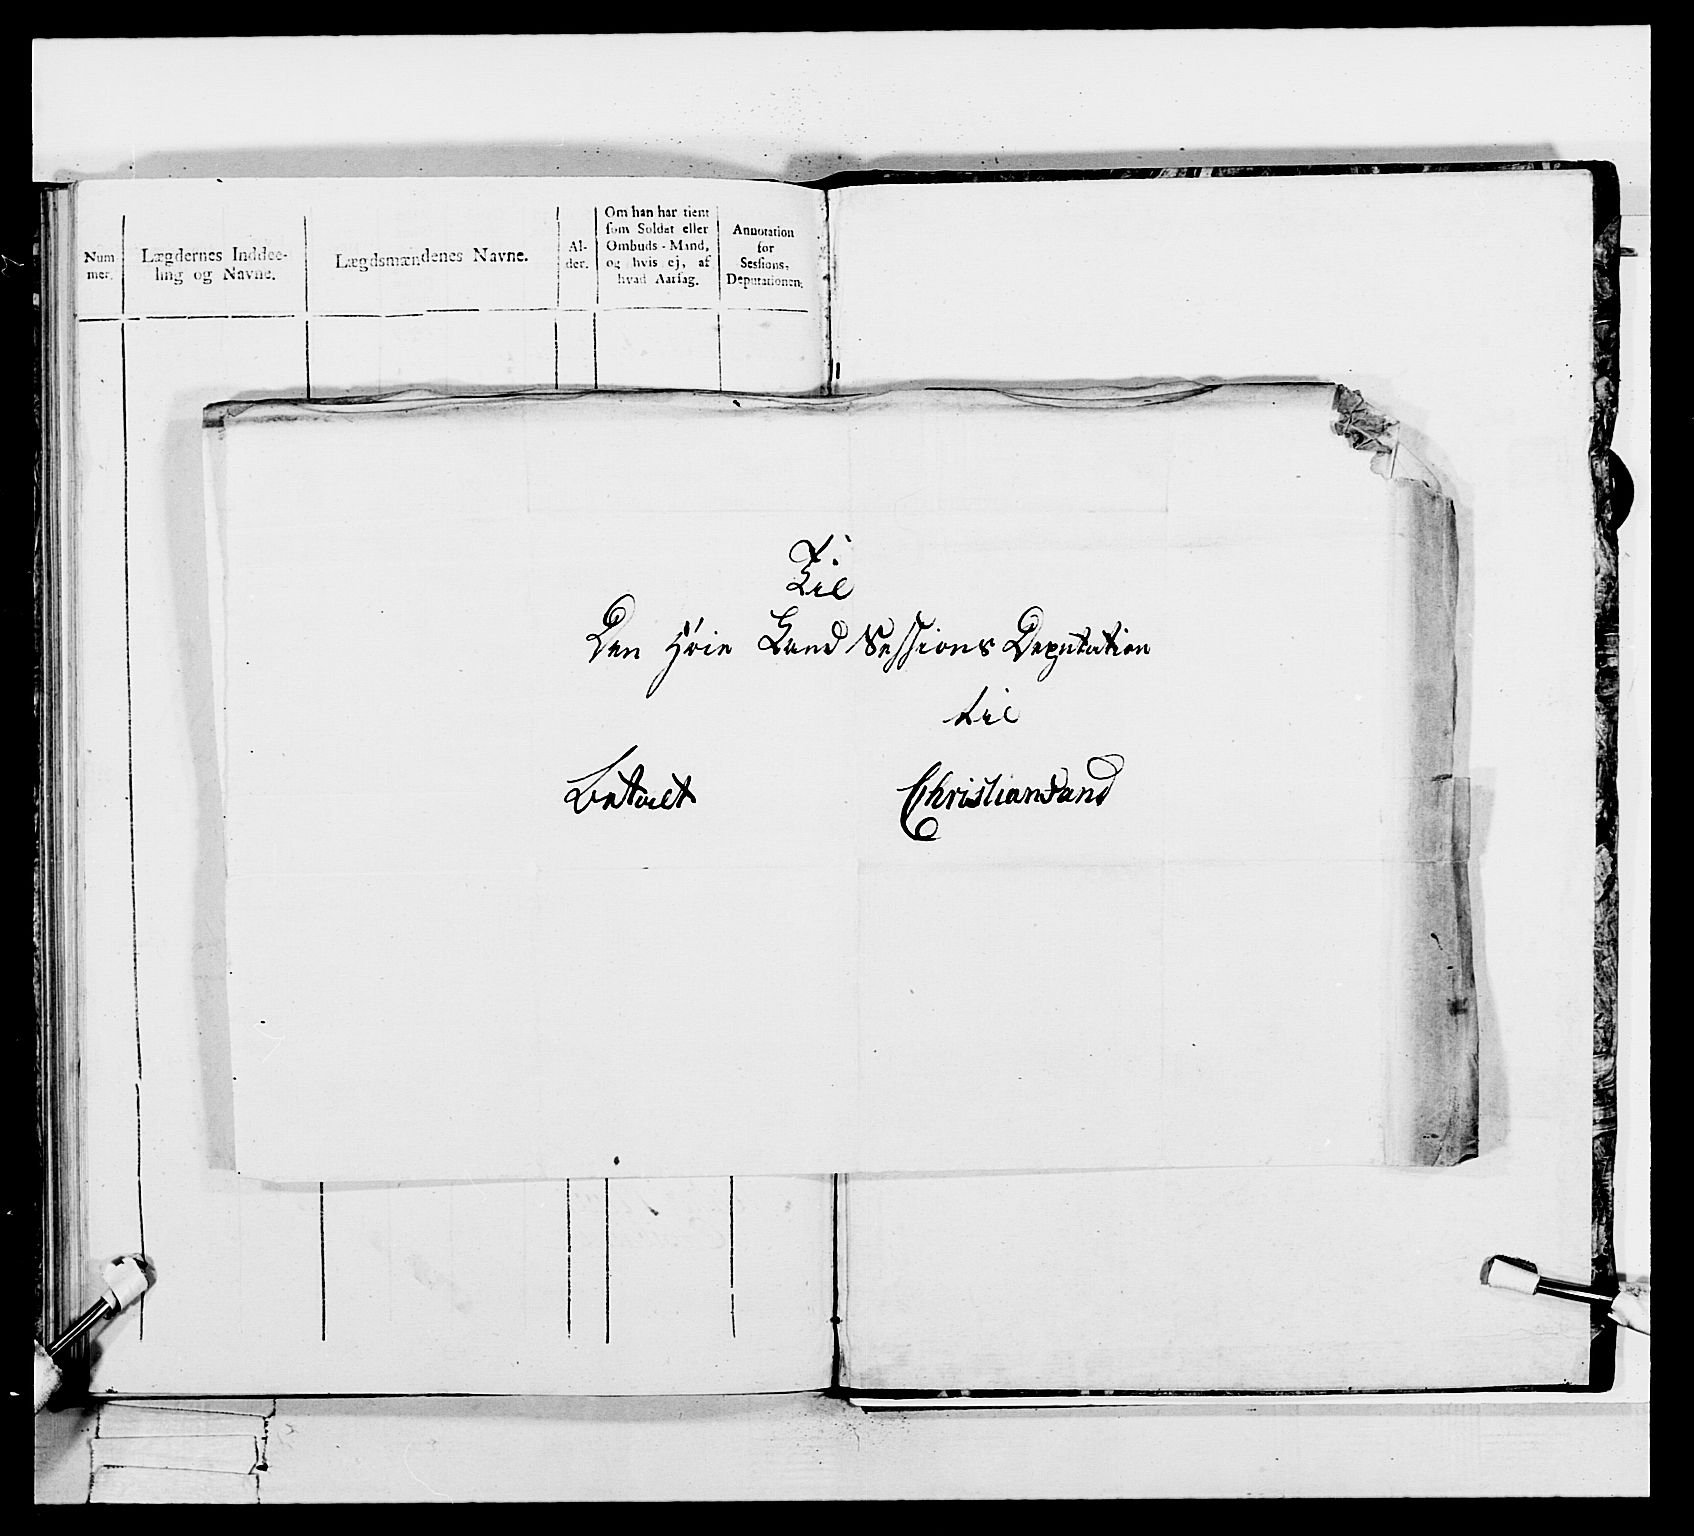 Num
mer.
Lægdernes Inddee-
ling og Navne.
Lægdsmændenes Navne.
Al-
der.
Om han har tient
som Soldat eller
Ombuds-Mand,
og hvis ej, af
hvad Aarsag.
Annotation
for
Sessions-
Deputationen.
Til
Den Høie Land Sessions Deputation
til
Betalt Christiansand